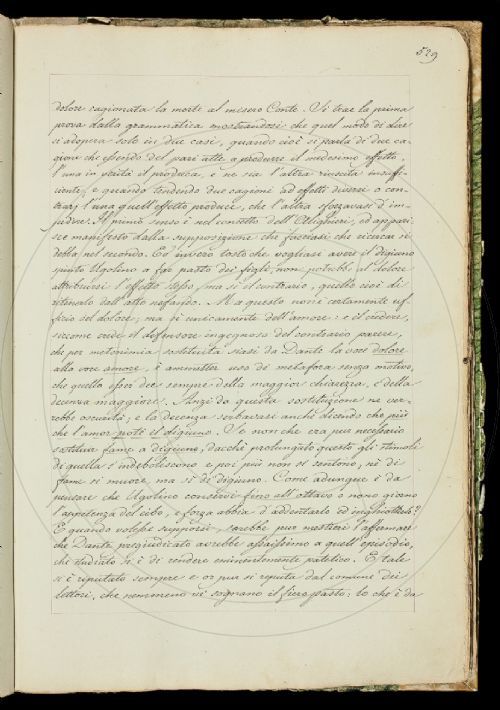 529
dolore cagionata la morte al misero Conte. Si trae la prima
prova dalla grammatica mostrandosi che quel modo di dire
si adopera solo in due casi, quando cioè si parla di due ca-
gioni che essendo del pari atte a produrre il medesimo effetto,
l'una in fatti il produca, e ne sia l'altra riuscita insuffi-
ciente, e quando tendendo due cagioni ad effetti diversi o con-
trarj l'una quell'effetto produce, che l'altra sforzavasi d'im-
pedire. Il primo senso è nel contesto dell'Alighieri, ed appari-
sce manifesto dalla supposizione che facciasi che ricercar si
debba nel secondo. Ed invero tosto che vogliasi avere il digiuno
spinto Ugolino a far pasto dei figli, non potrebbe al dolore
attribuirsi l'effetto stesso, ma sì il contrario, quello cioè di
ritenerlo dall'atto nefando. Ma questo non è certamente uf-
ficio del dolore, ma sì unicamente dell'amore: e il credere,
siccome crede il difensore ingegnoso del contrario parere,
che per metonimia sostituita siasi da Dante la voce dolore
alla voce amore, è ammetter uso di metafora senza motivo,
che quello esser dee sempre della maggior chiarezza, e della
decenza maggiore. Anzi da questa sostituzione ne ver-
rebbe oscurità, e la decenza serbavasi anche dicendo che più
che l'amor poté il digiuno. Se non che era pur necessario
sostituir fame a digiuno, dacchè prolungato questo gli stimoli
di quella s'indeboliscono e poi più non si sentono, nè di
fame si muore, ma sì di digiuno. Come adunque è da
pensare che Ugolino conservi fino all'ottavo o nono giorno
l'appetenza del cibo, e forza abbia d'addentarlo ed inghiottirlo?
E quando volesse supporsi, sarebbe pur mestieri l'affermare
che Dante pregiudicato avrebbe assaissimo a quell'episodio,
che studiato si è di rendere eminentemente patetico. E tale
si è riputato sempre e or pur si reputa dal comune dei
lettori, che nemmeno vi sognano il fiero pasto: lo che è da